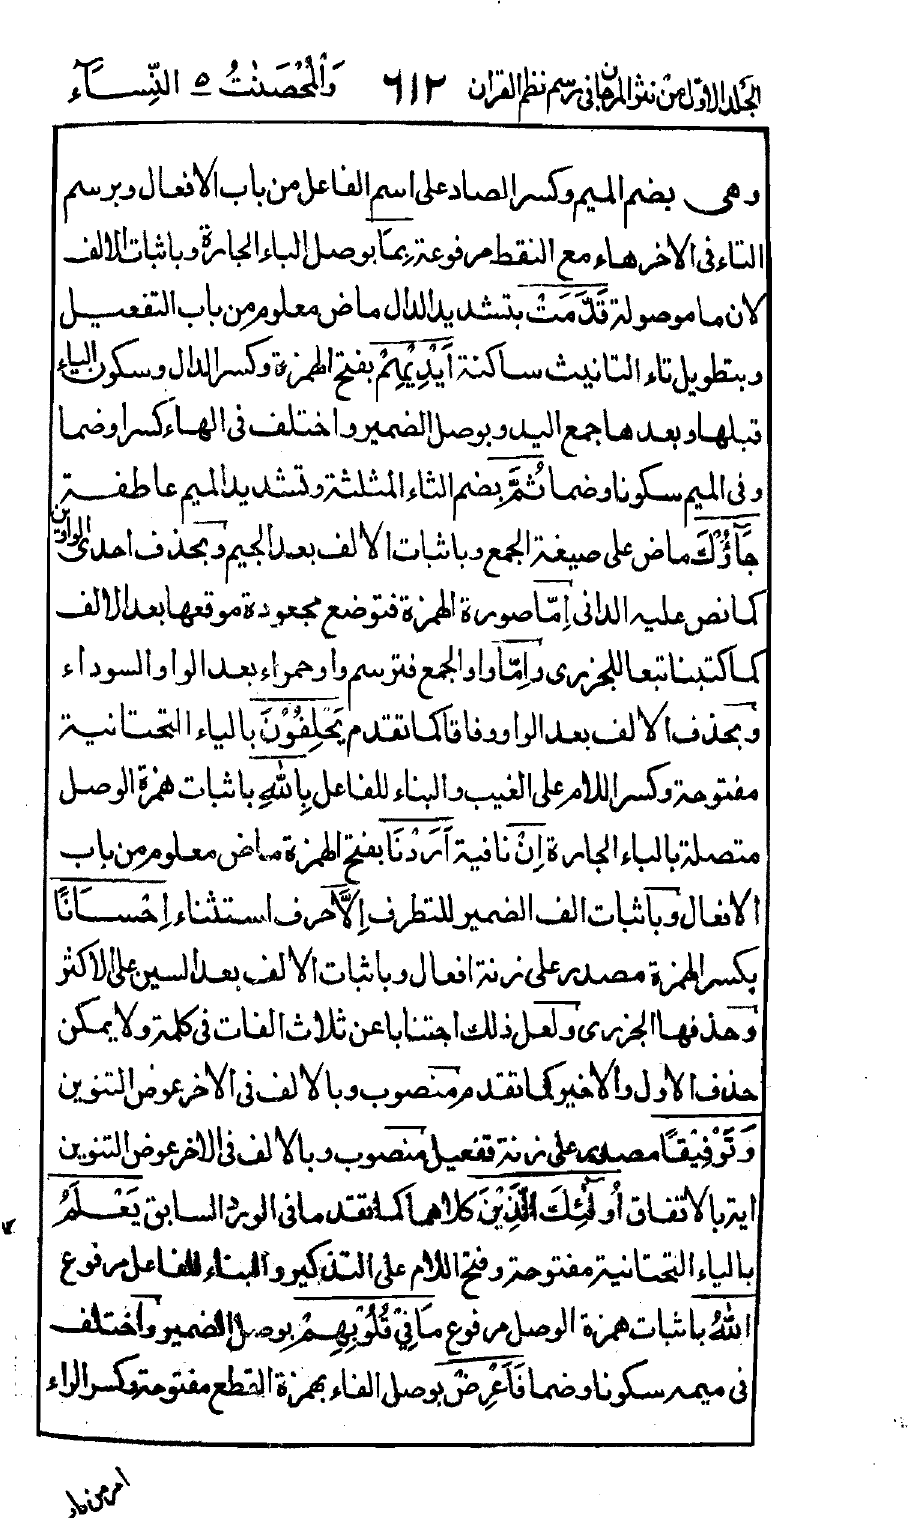 الجلد الاول من نثر المرجان في رسم نظم القران ٦١٢ وَالْمُحْصَنٰتُ ٥ النِّسَاۤء
وهى بضم الميم وكسر الصاد على اسم الفاعل من باب الافعال وبرسم
التاء فى الاخر هاء مع النقط مرفوعة بِمَا بوصل الباء الجارة وباثبات الالف
لان ما موصولة قَدَّمَتْ بتشديد الدال ماض معلوم من باب التفعيل
وبتطويل تاء التانيث ساكنة اَيْدِيْهِمْ بفتح الهمزة وكسر الدال وسكون الياء
قبلها وبعدها جمع اليد وبوصل الضمير واختلف فى الهاء كسرا وضما
وفى الميم سكونا وضما ثُمَّ بضم الثاء المثلثة وتشديد الميم عاطفة
جَاۤؤُكَ ماض على صيغة الجمع وباثبات الالف بعد الجيم وبحذف احدى الواوين
كما نص عليه الدانى اِمّا صورة الهمزة فتوضع مجعودة موقعها بعد الالف
كما كتبنا تبعا للجزرى وامّا واو الجمع فترسم واو حمراء بعد الواو السوداء
وبحذف الالف بعد الواو وفاقا كما تقدم يَحْلِفُوْنَ بالياء التحتانية
مفتوحة وكسر اللام على الغيب والبناء للفاعل بِاللهِ باثبات همزة الوصل
متصلة بالباء الجارة اِنْ نافية اَرَدْنَا بفتح الهمزة ماض معلوم من باب
الافعال وباثبات الف الضمير للتطرف اِلَّا حرف استثناء اِحْسَانًا
بكسر الهمزة مصدر على زنة افعال وباثبات الالف بعد السين على الاكثر
وحذفها الجزرى ولعل ذلك اجتنابا عن ثلاث الفات فى كلمة ولا يمكن
حذف الاول والاخير كما تقدم منصوب وبالالف فى الاخر عوض التنوين
وَتَوْفِيْقًا مصدر على زنة تفعيل منصوب وبالالف فى الاخر عوض التنوين
اية بالاتفاق اُولٰۤئِكَ الَّذِيْنَ كلاهما كما تقدما فى الورد السابق يَعْلَمُ
بالياء التحتانية مفتوحة وفتح اللام على التذكير والبناء للفاعل مرفوع
اللهُ باثبات همزة الوصل مرفوع مَا فِيْ قُلُوْبِهِمْ بوصل الضمير واختلف
فى ميمه سكونا وضما فَاَعْرِضْ بوصل الفاء بهمزة القطع مفتوحة وكسر الراء
امر من باب